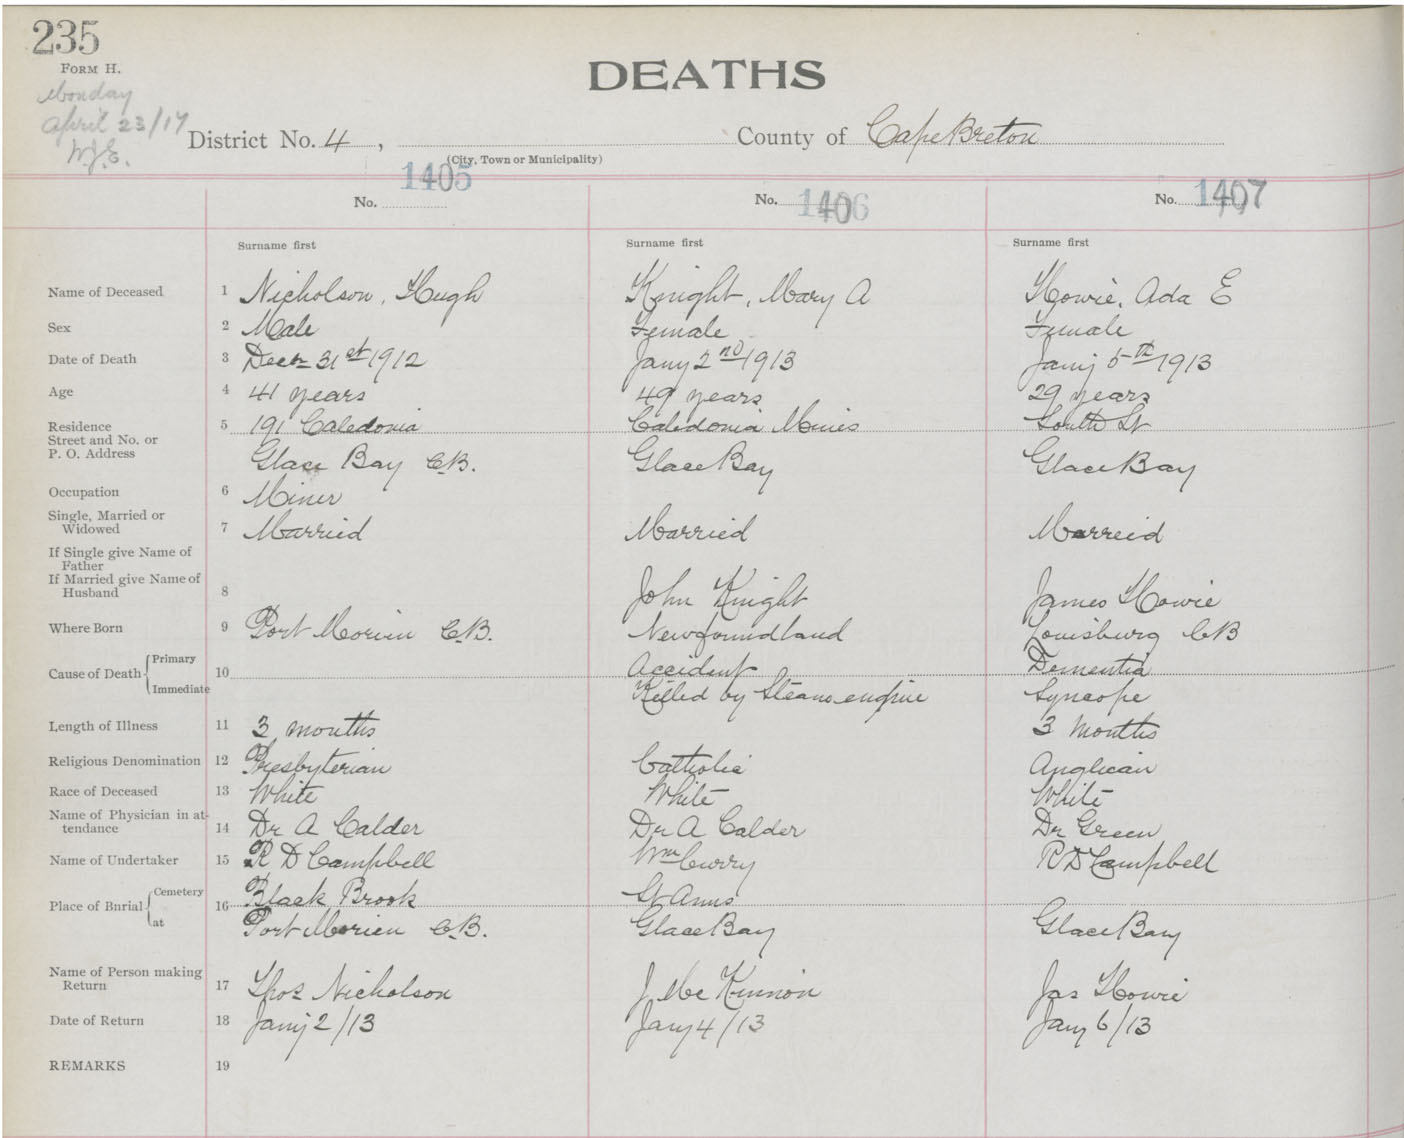 235
FORM H.
Monday
April 23/17
W.J.E.
DEATHS
District No. 4 , County of Cape Breton
(City, Town or Municipality)
No. 1405 No. 1406 No. 1407
Surname first Surname first Surname first
Name of Deceased 1 Nicholson, Hugh Knight, Mary A Howie, Ada E
Sex 2 Male Female Female
Date of Death 3 Decr 31st 1912 Jany 2nd 1913 Jany 5th 1913
Age 4 41 years 49 years 29 years
Residence 5 191 Caledonia Caledonia Mines South St
Street and No. or
P. O. Address Glace Bay C.B. Glace Bay Glace Bay
Occupation 6 Miner
Single, Married or
Widowed 7 Married Married Marreid
If Single give Name of
Father
If Married give Name of
Husband 8 John Knight James Howie
Where Born 9 Port Morien C.B. Newfoundland Louisburg CB
Cause of Death Primary 10 Accident Dementia
Immediate Killed by Steam engine Syncope
Length of Illness 11 3 months 3 months
Religious Denomination 12 Presbyterian Catholic Anglican
Race of Deceased 13 White White White
Name of Physician in at-
tendance 14 Dr A Calder Dr A Calder Dr Green
Name of Undertaker 15 R D Campbell Wm Curry R D Campbell
Place of Burial Cemetery 16 Black Brook St Anns
at Port Morien C.B. Glace Bay Glace Bay
Name of Person making
Return 17 Thos Nicholson J Mc Kinnon Jas Howie
Date of Return 18 Jany 2/13 Jany 4/13 Jany 6/13
REMARKS 19